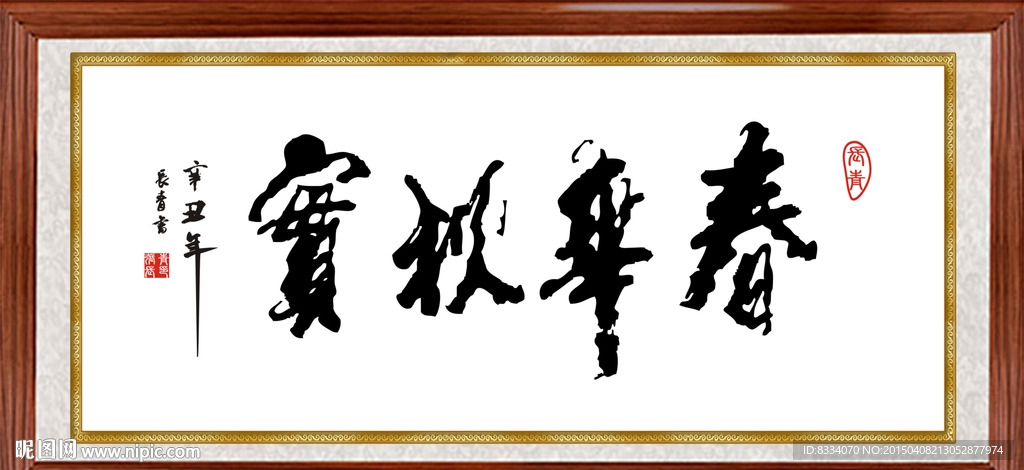 春華秋實
辛丑年
長青書
長青
昵图网 www.nipic.com
ID:8334070 NO:20150408213052877974